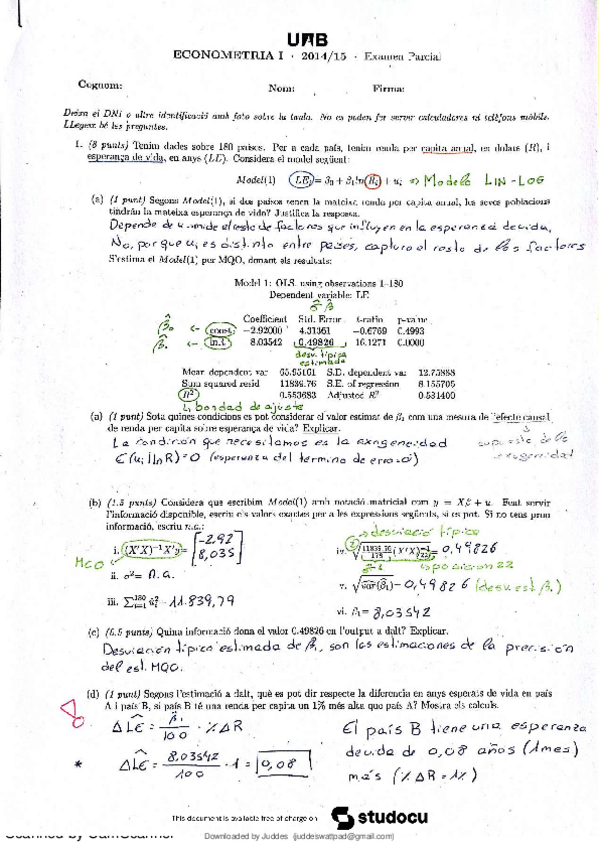 UAB
ECONOMETRIA I · 2014/15 · Examen Parcial
Cognom: Nom: Firma:
Deixa el DNI o altre identificació amb foto sobre la taula. No es poden fer servir calculadores ni telèfons mòbils.
LLegeix bé les preguntes.
1. (8 punts) Tenim dades sobre 180 països. Per a cada país, tenim renda per capita anual, en dolars (R), i
esperança de vida, en anys (LE). Considera el model següent:
Model(1) LEi = β0 + β1 ln(Ri) + ui => Modelo LIN-LOG
(a) (1 punt) Segons Model(1), si dos països tenen la mateixa renda per capita anual, les seves poblacions
tindrán la mateixa esperança de vida? Justifica la resposta.
Depende de u, mide el resto de factores que influyen en la esperanza de vida.
No, porque ui es distinto entre países, captura el resto de los factores
S'estima el Model(1) per MQO, donant els resultats:
Model 1: OLS, using observations 1–180
Dependent variable: LE
σ̂ β̂
Coefficient Std. Error t-ratio p-value
β̂0 <- const −2.92000 4.31361 −0.6769 0.4993
β̂1 <- lnR 8.03542 0.49826 16.1271 0.0000
desv. típica
estimada
Mean dependent var 65.95161 S.D. dependent var 12.75888
Sum squared resid 11839.76 S.E. of regression 8.155705
R² 0.593683 Adjusted R² 0.591400
↳ bondad de ajuste
(a) (1 punt) Sota quines condicions es pot considerar el valor estimat de β1 com una mesura de l'efecte causal
de renda per capita sobre esperança de vida? Explicar.
La condición que necesitamos es la exogeneidad
supuesto de la
exogeneidad
E(ui | ln R) = 0 (esperanza del termino de error = 0)
(b) (1.5 punts) Considera que escribim Model(1) amb notació matricial com y = Xβ + u. Fent servir
l'informació disponible, escriu els valors exactes per a les expressions següents, si es pot. Si no tens prou
informació, escriu n.a.:
-> desviació típica
i. (X'X)⁻¹X'y = [-2,92
8,035]
MCO
iv. √(11839.76/178 (X'X)⁻¹22) = 0,49826
posicion 22
ii. σ² = n.a.
v. √var(β̂1) = 0,49826 (desv est β̂1)
iii. Σ¹⁸⁰ᵢ₌₁ ûi² = 11.839,79
vi. β̂1 = 8,03542
(c) (0.5 punts) Quina informació dona el valor 0.49826 en l'output a dalt? Explicar.
Desviacion típica estimada de β̂1, son las estimaciones de la precisión
del est. MQO.
(d) (1 punt) Segons l'estimació a dalt, què es pot dir respecte la diferencia en anys esperats de vida en país
A i país B, si país B té una renda per capita un 1% més alta que país A? Mostra els calculs.
ΔL̂E = β̂1/100 · %ΔR
El país B tiene una esperanza
de vida de 0,08 años (1 mes)
* ΔL̂E = 8,03542/100 · 1 = 0,08
más (%ΔR = 1%)
This document is available free of charge on studocu
Scanned by CamScanner
Downloaded by Juddes (juddeswattpad@gmail.com)